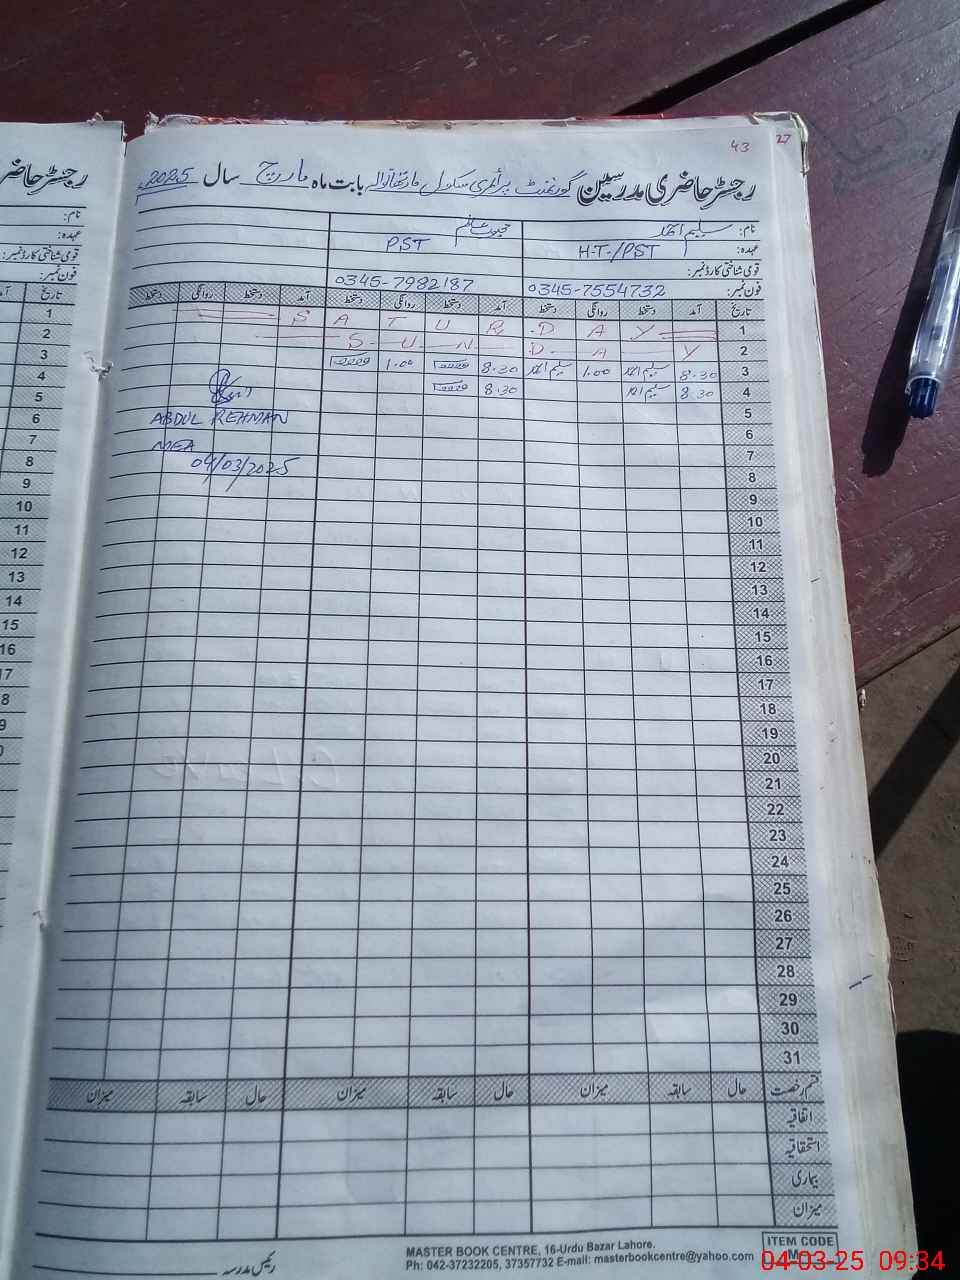 43 27
رجسٹر حاضری مدرسین گورنمنٹ پرائمری سکول بابت ماہ مارچ سال 2025ء
نام: سلیم احمد
عہدہ: H.T./PST PST
قومی شناختی کارڈ نمبر:
فون نمبر: 0345-7554732 0345-7982187
تاریخ آمد دستخط روانگی دستخط آمد دستخط روانگی دستخط آمد دستخط روانگی دستخط
1 S A T U R D A Y
2 S U N D A Y
3 8.30 سلیم احمد 1.00 سلیم احمد 8.30 1.00
4 8.30 سلیم احمد 8.30
5
6
7
8
9
10
11
12
13
14
15
16
17
18
19
20
21
22
23
24
25
26
27
28
29
30
31
ABDUL REHMAN
MEA
04/03/2025
قسم رخصت حال سابقہ میزان حال سابقہ میزان حال سابقہ میزان
اتفاقیہ
استحقاقیہ
بیماری
میزان
رئیس مدرسہ
MASTER BOOK CENTRE, 16-Urdu Bazar Lahore.
Ph: 042-37232205, 37357732 E-mail: masterbookcentre@yahoo.com
ITEM CODE
M
04-03-25 09:34
رجسٹر حاضر
نام:
عہدہ:
قومی شناختی کارڈ نمبر:
فون نمبر:
تاریخ
1
2
3
4
5
6
7
8
9
10
11
12
13
14
15
16